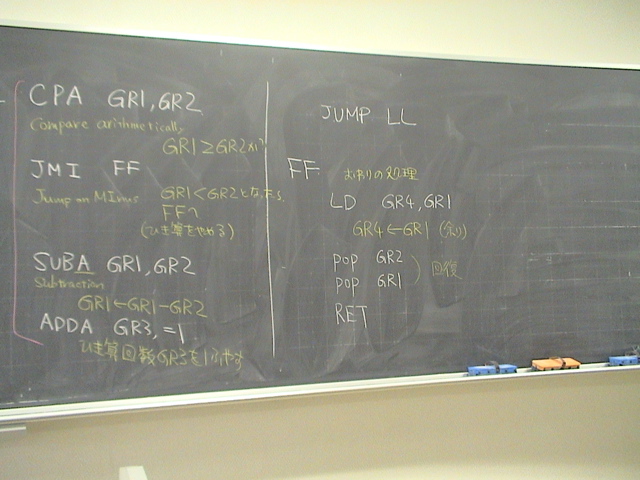 CPA GR1,GR2
Compare arithmetically
GR1≥GR2か?
JMI FF
Jump on MInus GR1<GR2となったら
FFへ
(ひき算をやめる)
SUBA GR1,GR2
Subtraction
GR1←GR1-GR2
ADDA GR3,=1
ひき算回数GR3を1ふやす
JUMP LL
FF おわりの処理
LD GR4,GR1
GR4←GR1 (余り)
POP GR2
POP GR1
回復
RET